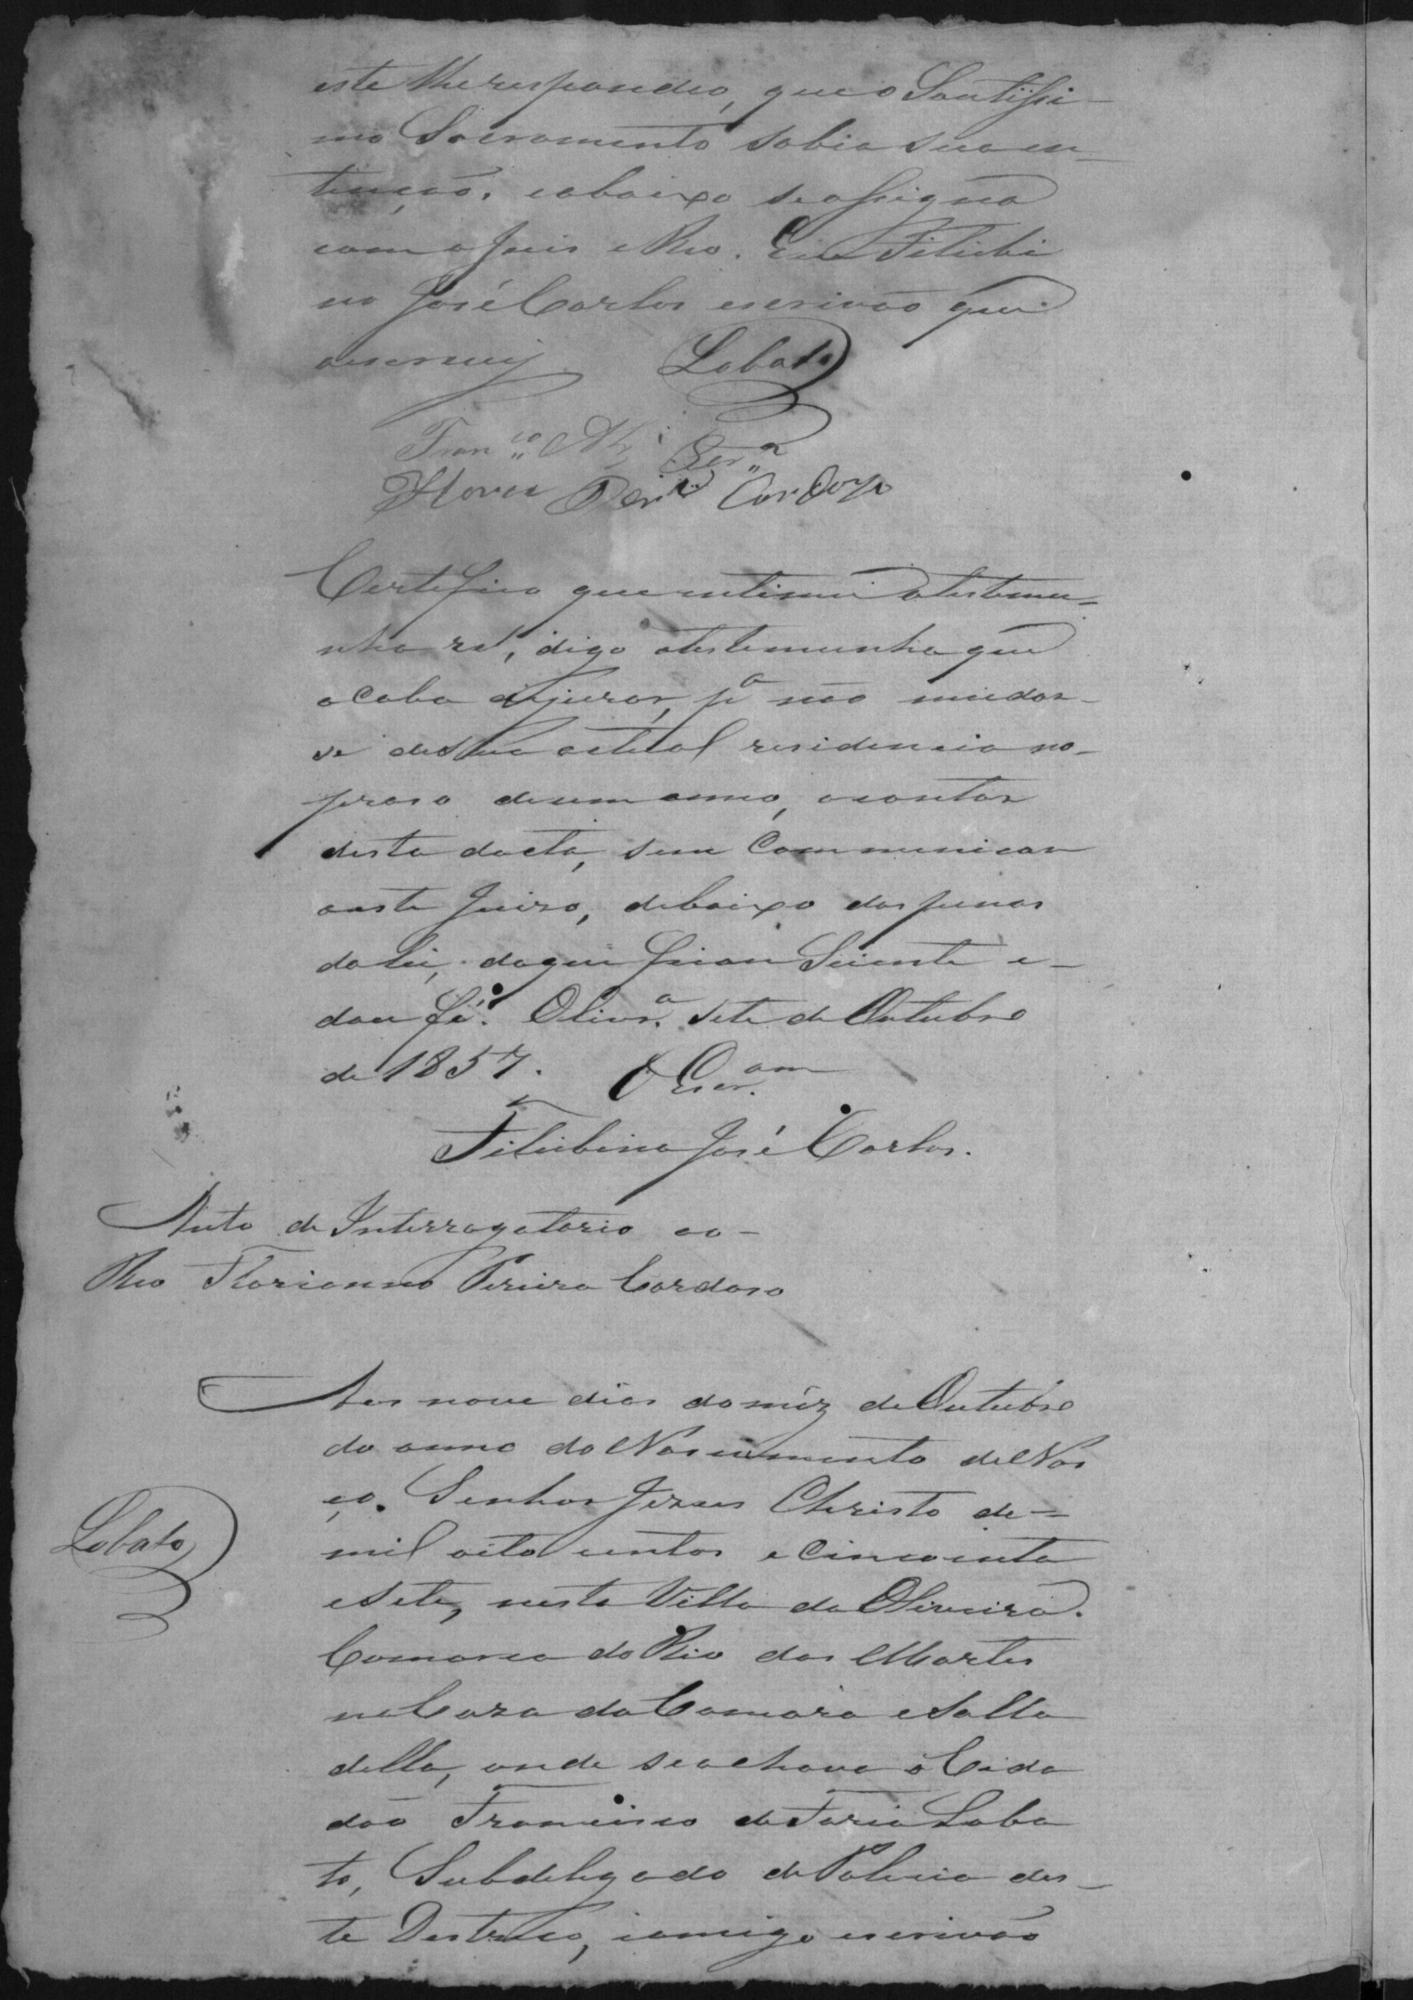 este lhe respondeo, que o Santissi-
mo Sacramento sabia sua en-
tenção. e abaixo se assigna
com o Juis e Reo. Eu Felicibi
no José Carlos escrivão que
escrevi Lobato
Fran.co Alz' Per.a
Flores Per.a Cardozo
Certifico que intimei a testemu-
nha ref, digo a testemunha que
acaba de jurar, p.a não mudar-
se de sua actual residencia no-
praso de um anno, a contar
desta dacta, sem Communicar
a este Juizo, debaixo das penas
da Lei, do que ficou Sciente e-
dou fé. Oliv.a sete de Outubro
de 1857. O Escr.am
Felicibino José Carlos.
Auto de Interrogatorio ao-
Reo Florianno Pereira Cardoso
Aos nove dias do mêz de Outubro
do anno do Nascimento de Nos
ço. Senhor Jezus Christo de=
mil oito centos e Cincoenta
e Sete, nesta Villa da Oliveira.
Comarca do Rio das Mortes
na Caza da Camara e Salla
della, onde se achava o Cida
dão Francisco de Faria Loba
to, Subdelegado de Policia des-
te Destricto, comigo escrivão
Lobato